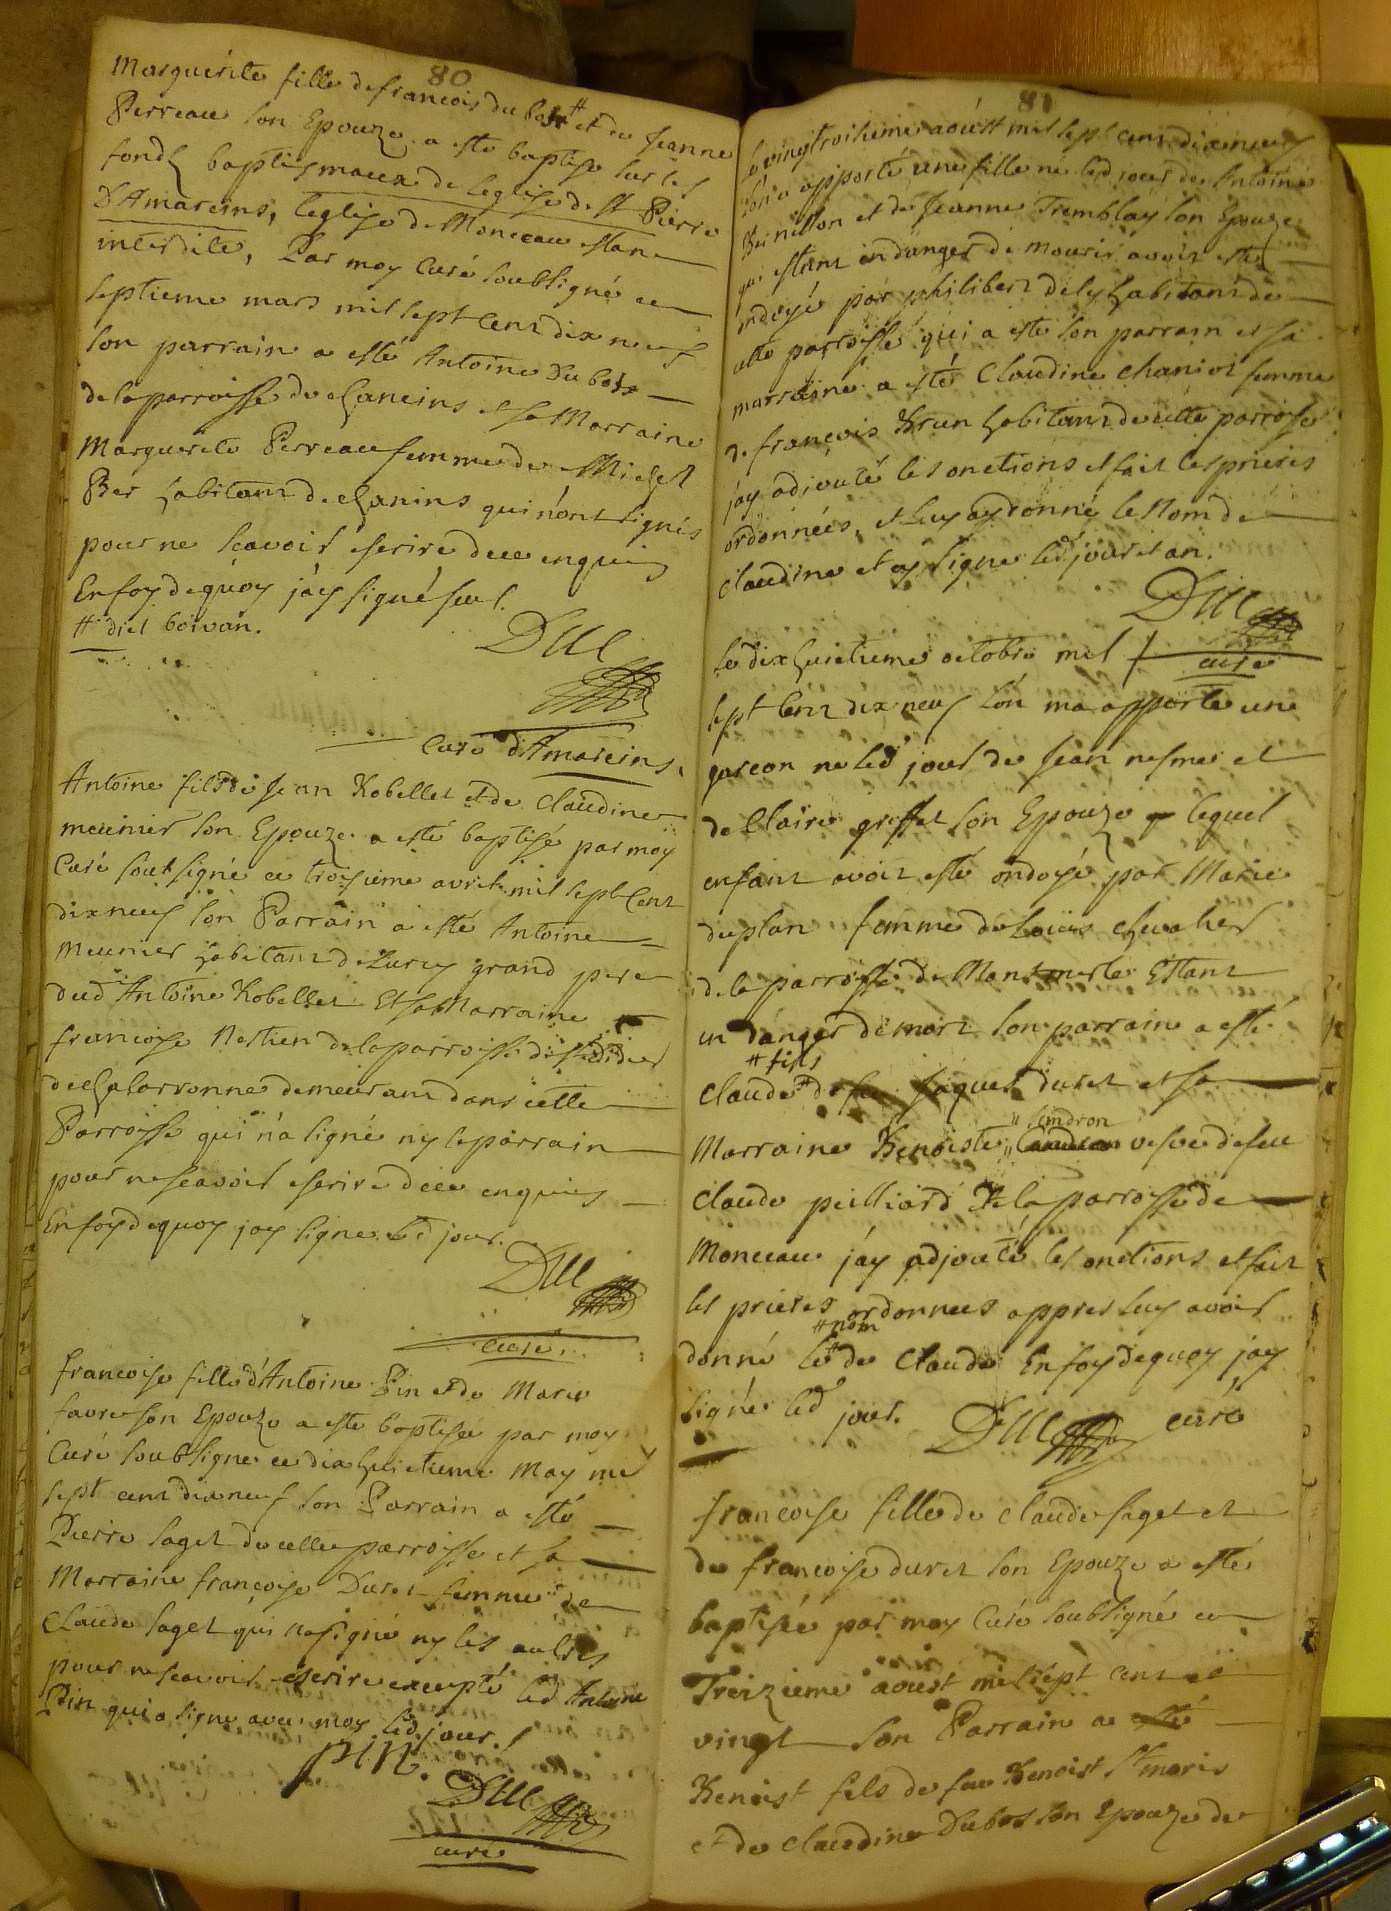 80
Marguerite fille de francois du bost # et de Jeanne
Perreau son Epouze a esté baptisé sur les
fonds baptismaux de leglise de St Pierre
D'Amareins, leglise de Monceau estan
interdite, Par moy Curé soubsigné ce
septieme mars mil sept cent dix neuf
son parrain a esté Antoine Du bost
de la parroisse de chaneins et sa Marraine
Marguerite Perreau femme de Michel
Ber habitant de chanins qui n'ont signés
pour ne scavoir escrire de ce enquis
En foy de quoy j'ay signé seul.
# dict boivan.
Duc
Curé d'Amareins.
Antoine fils de Jean Robellet et de Claudine
meunier son Epouze a esté baptisé par moy
Curé soubsigné ce troisieme avril mil sept cent
dix neuf son Parrain a esté Antoine
Meunier habitant de Lurcy grand pere
dud Antoine Robellet Et sa Marraine
francoise Nestien de la parroisse de St didier
de chalaronne demeurant dans cette
Parroisse qui n'a signé ny le parrain
pour ne scavoir escrire de ce enquis
En foy de quoy jay signé led jour.
Duc
curé
francoise fille d'Antoine Pin et de Marie
favre son Epouze a esté baptisée par moy
Curé soubsigné ce dix huictieme May mil
sept cent dix neuf son Parrain a esté
Pierre saget de cette parroisse et sa
Marraine francoise Duret femme de
Claude saget qui na signé ny les aultres
pour ne scavoir escrire excepté led Antoine
Pin qui a signé avec moy led jour.
PIN.
Duc
curé
81
le vingt troisieme aoust mil sept cent dix neuf
lon a apporté une fille né led jour de Antoine
et de Jeanne Tremblay son Epouze
qui estant en danger de mourir avoit esté
ondoyé par philibert dely habitant de
cette parroisse qui a esté son parrain et sa
marraine a esté Claudine chaniot femme
de françois Brun habitant de cette parroisse
jay adjouté les onctions et fait les prieres
ordonnées, et luy ay donné le Nom de
Claudine et ay signé led jour et an.
Duc
curé
le dix huictieme octobre mil
sept cent dix neuf lon ma apporté une
garcon ne led jour de Jean mesme et
de Claire greffet son Epouze lequel
enfant avoit esté ondoyé par Marie
duplan femme de Louis chevalier
de la parroisse de Montmerle Estant
en danger de mort son parrain a esté
# fils
Claude # de feu Jaques duret et sa
" Sendron
Marraine Benoiste " vefve de feu
Claude pilliard De la parroisse de
Monceau j'ay adjouté les onctions et fait
les prieres ordonnees appres luy avoir
# nom
donné le # de Claude En foy de quoy jay
signé led jour. Duc curé
francoise fille de Claude saget et
de francoise duret son Epouze a esté
baptisée par moy Curé soubsigné ce
Treizieme aoust mil sept cent
vingt son Parrain a esté
Benoist fils de feu Benoist
et de Claudine Dubost son Epouze de